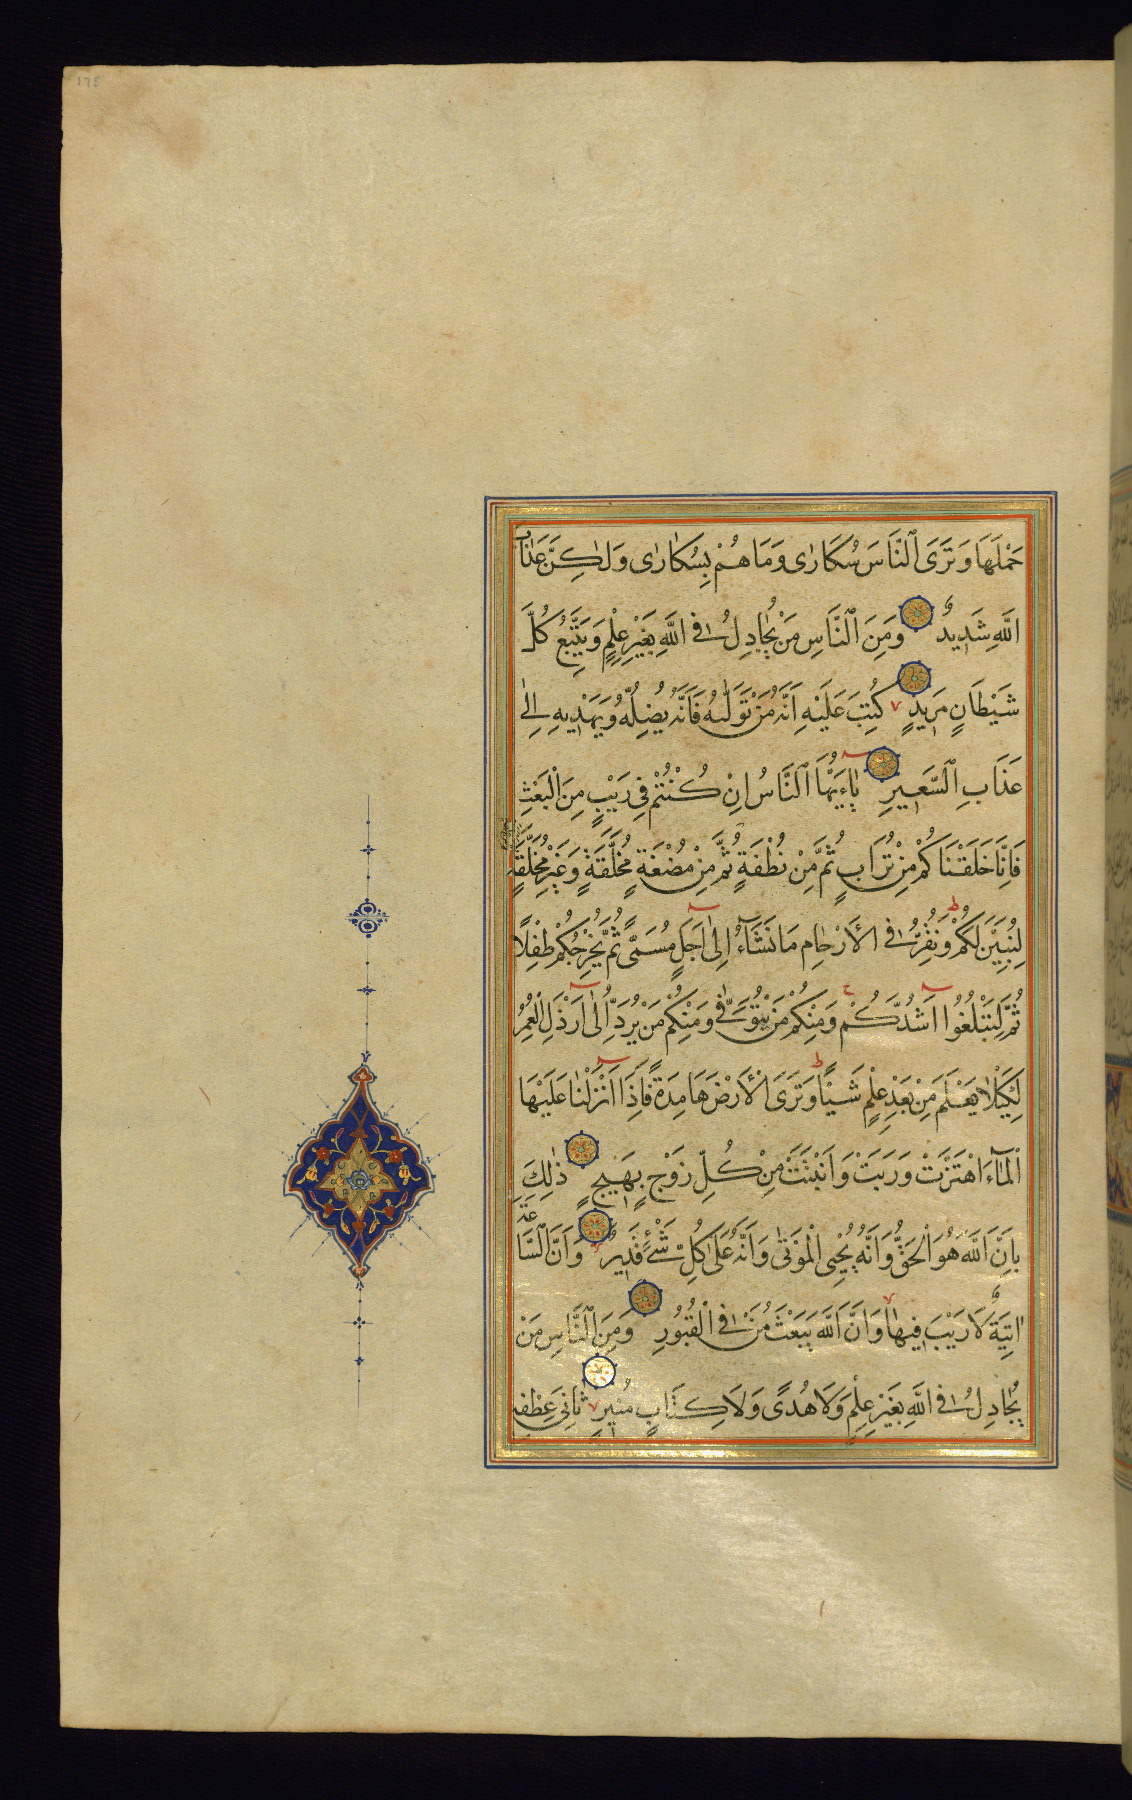 175
حَمْلَهَا وَتَرَى النَّاسَ سُكَارٰى وَمَا هُمْ بِسُكَارٰى وَلٰكِنَّ عَذَابَ
اللّٰهِ شَدِيدٌ وَمِنَ النَّاسِ مَنْ يُجَادِلُ فِي اللّٰهِ بِغَيْرِ عِلْمٍ وَيَتَّبِعُ كُلَّ
شَيْطَانٍ مَرِيدٍ كُتِبَ عَلَيْهِ اَنَّهُ مَنْ تَوَلَّاهُ فَاَنَّهُ يُضِلُّهُ وَيَهْدِيهِ اِلٰى
عَذَابِ السَّعِيرِ يَاءَيُّهَا النَّاسُ اِنْ كُنْتُمْ فِي رَيْبٍ مِنَ الْبَعْثِ
فَاِنَّا خَلَقْنَاكُمْ مِنْ تُرَابٍ ثُمَّ مِنْ نُطْفَةٍ ثُمَّ مِنْ مُضْغَةٍ مُخَلَّقَةٍ وَغَيْرِ مُخَلَّقَةٍ
لِنُبَيِّنَ لَكُمْ وَنُقِرُّ فِي الْاَرْحَامِ مَا نَشَاءُ اِلٰى اَجَلٍ مُسَمًّى ثُمَّ نُخْرِجُكُمْ طِفْلًا
ثُمَّ لِتَبْلُغُوا اَشُدَّكُمْ وَمِنْكُمْ مَنْ يُتَوَفّٰى وَمِنْكُمْ مَنْ يُرَدُّ اِلٰى اَرْذَلِ الْعُمُرِ
لِكَيْلَا يَعْلَمَ مِنْ بَعْدِ عِلْمٍ شَيْئًا وَتَرَى الْاَرْضَ هَامِدَةً فَاِذَا اَنْزَلْنَا عَلَيْهَا
الْمَاءَ اهْتَزَّتْ وَرَبَتْ وَاَنْبَتَتْ مِنْ كُلِّ زَوْجٍ بَهِيجٍ ذٰلِكَ
بِاَنَّ اللّٰهَ هُوَ الْحَقُّ وَاَنَّهُ يُحْيِي الْمَوْتٰى وَاَنَّهُ عَلٰى كُلِّ شَيْءٍ قَدِيرٌ وَاَنَّ السَّاعَةَ
اٰتِيَةٌ لَا رَيْبَ فِيهَا وَاَنَّ اللّٰهَ يَبْعَثُ مَنْ فِي الْقُبُورِ وَمِنَ النَّاسِ مَنْ
يُجَادِلُ فِي اللّٰهِ بِغَيْرِ عِلْمٍ وَلَا هُدًى وَلَا كِتَابٍ مُنِيرٍ ثَانِيَ عِطْفِهِ